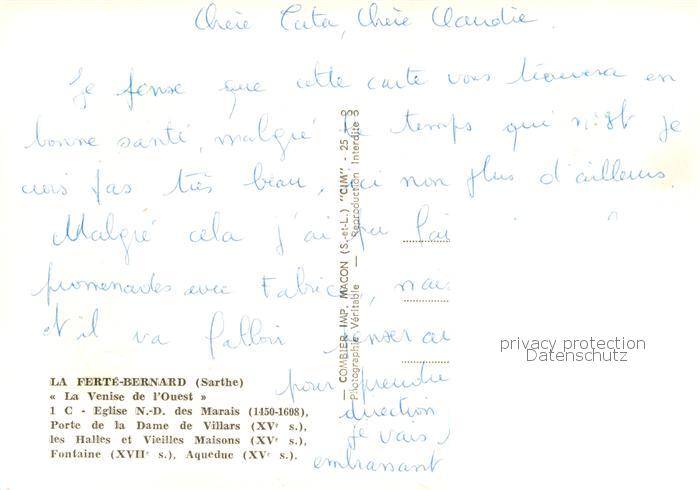 Chère Tata, Chère Claudie.
Je pense que cette carte vous trouvera en
bonne santé, malgré le temps qui n'est je
crois pas très beau, ici non plus d'ailleurs.
Malgré cela j'ai pu
promenades avec Fabrice, mais
et il va falloir penser au
pour prendre
direction
je vais
embrassant
LA FERTÉ-BERNARD (Sarthe)
« La Venise de l'Ouest »
1 C - Eglise N.-D. des Marais (1450-1608),
Porte de la Dame de Villars (XVe s.),
les Halles et Vieilles Maisons (XVe s.),
Fontaine (XVIIe s.), Aqueduc (XVe s.).
— COMBIER IMP. MACON (S.-et-L.) "CIM" - 25
Photographie Véritable — Reproduction Interdite
privacy protection
Datenschutz